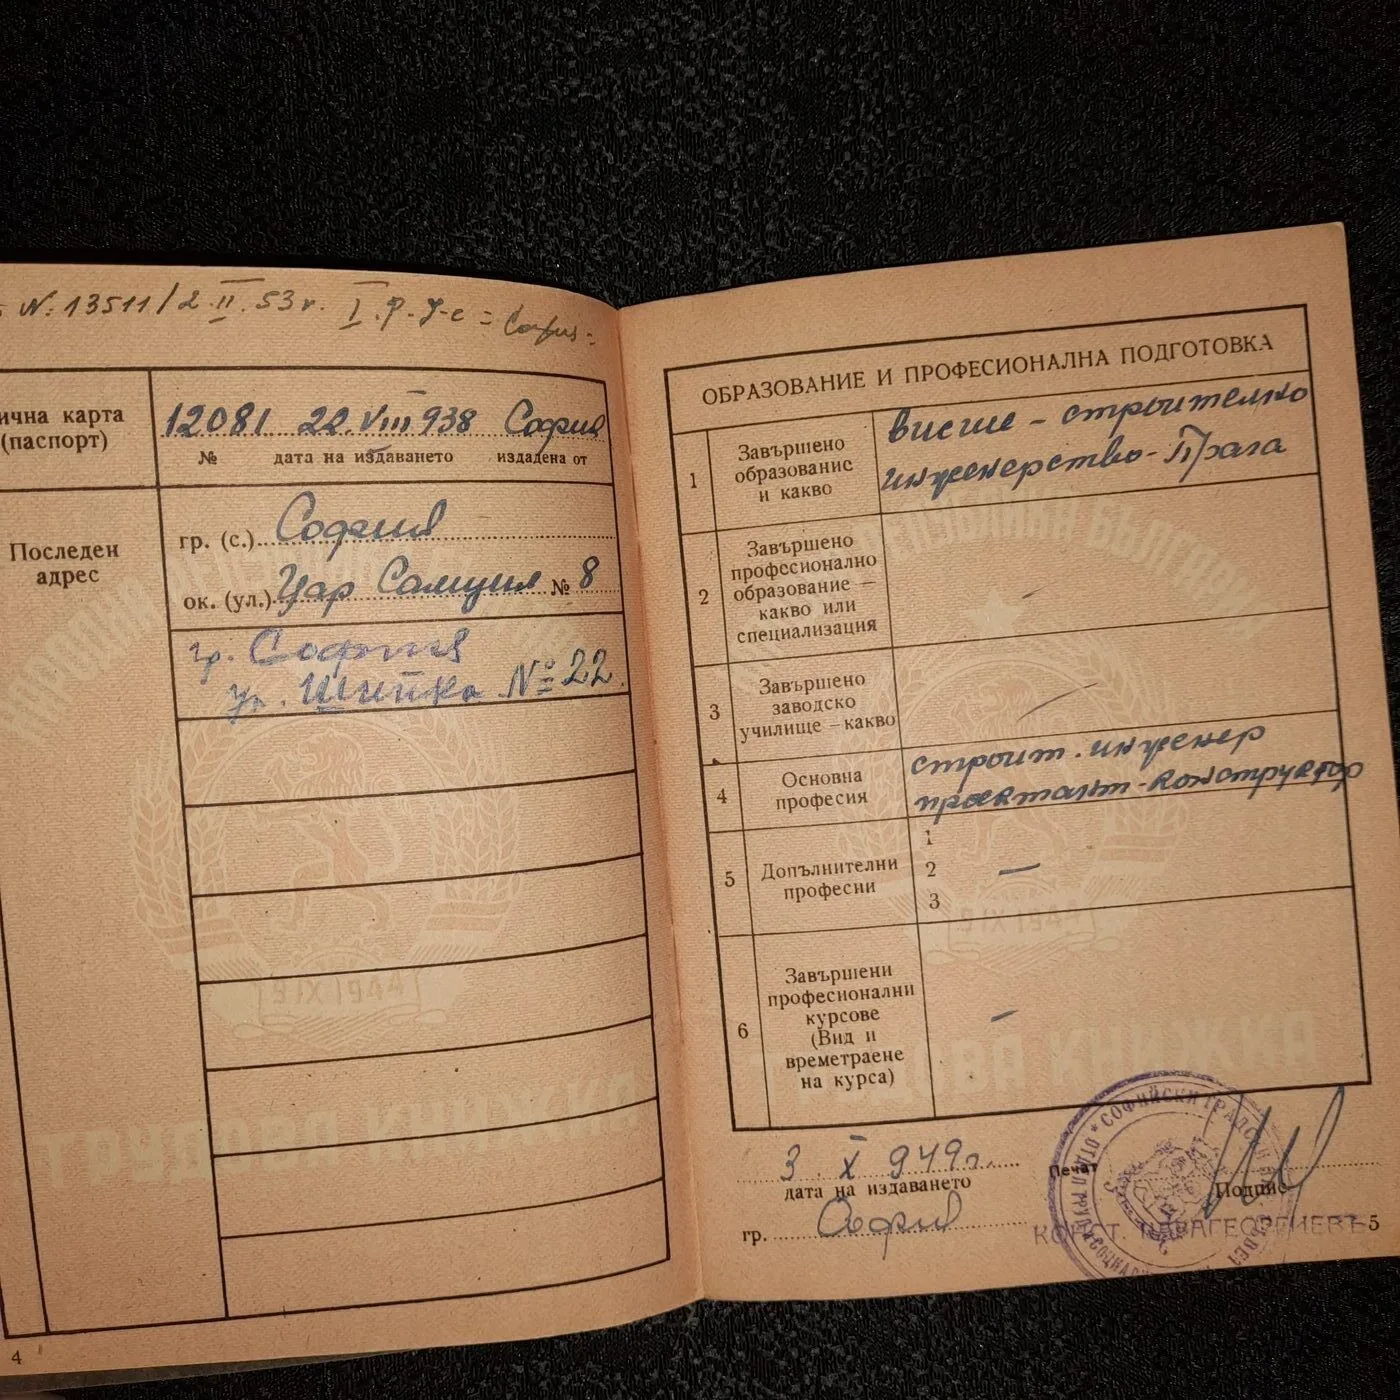 № 13511/2.II.53 г. I.р.у-е = София =
ична карта
(паспорт)
12081 22.VIII 938 София
№ дата на издаването издадена от
Последен
адрес
гр. (с.) София
ок. (ул.) Цар Самуил № 8
гр. София
ул. Шипка № 22
9 IX 1944
4
ОБРАЗОВАНИЕ И ПРОФЕСИОНАЛНА ПОДГОТОВКА
1
Завършено
образование
и какво
висше – строително
инженерство – Прага
2
Завършено
професионално
образование —
какво или
специализация
—
3
Завършено
заводско
училище – какво
—
4
Основна
професия
строит. инженер
проектант-конструктор
5
Допълнителни
професии
1
2 —
3
6
Завършени
професионални
курсове
(Вид и
времетраене
на курса)
—
3. X 949 г.
дата на издаването
гр. София
Печат
Подпис
СОФИЙСКИ ГРАДСКИ
ОТДЕЛ ТРУД
КОНСТ. КАРАГЕОРГИЕВЪ
5